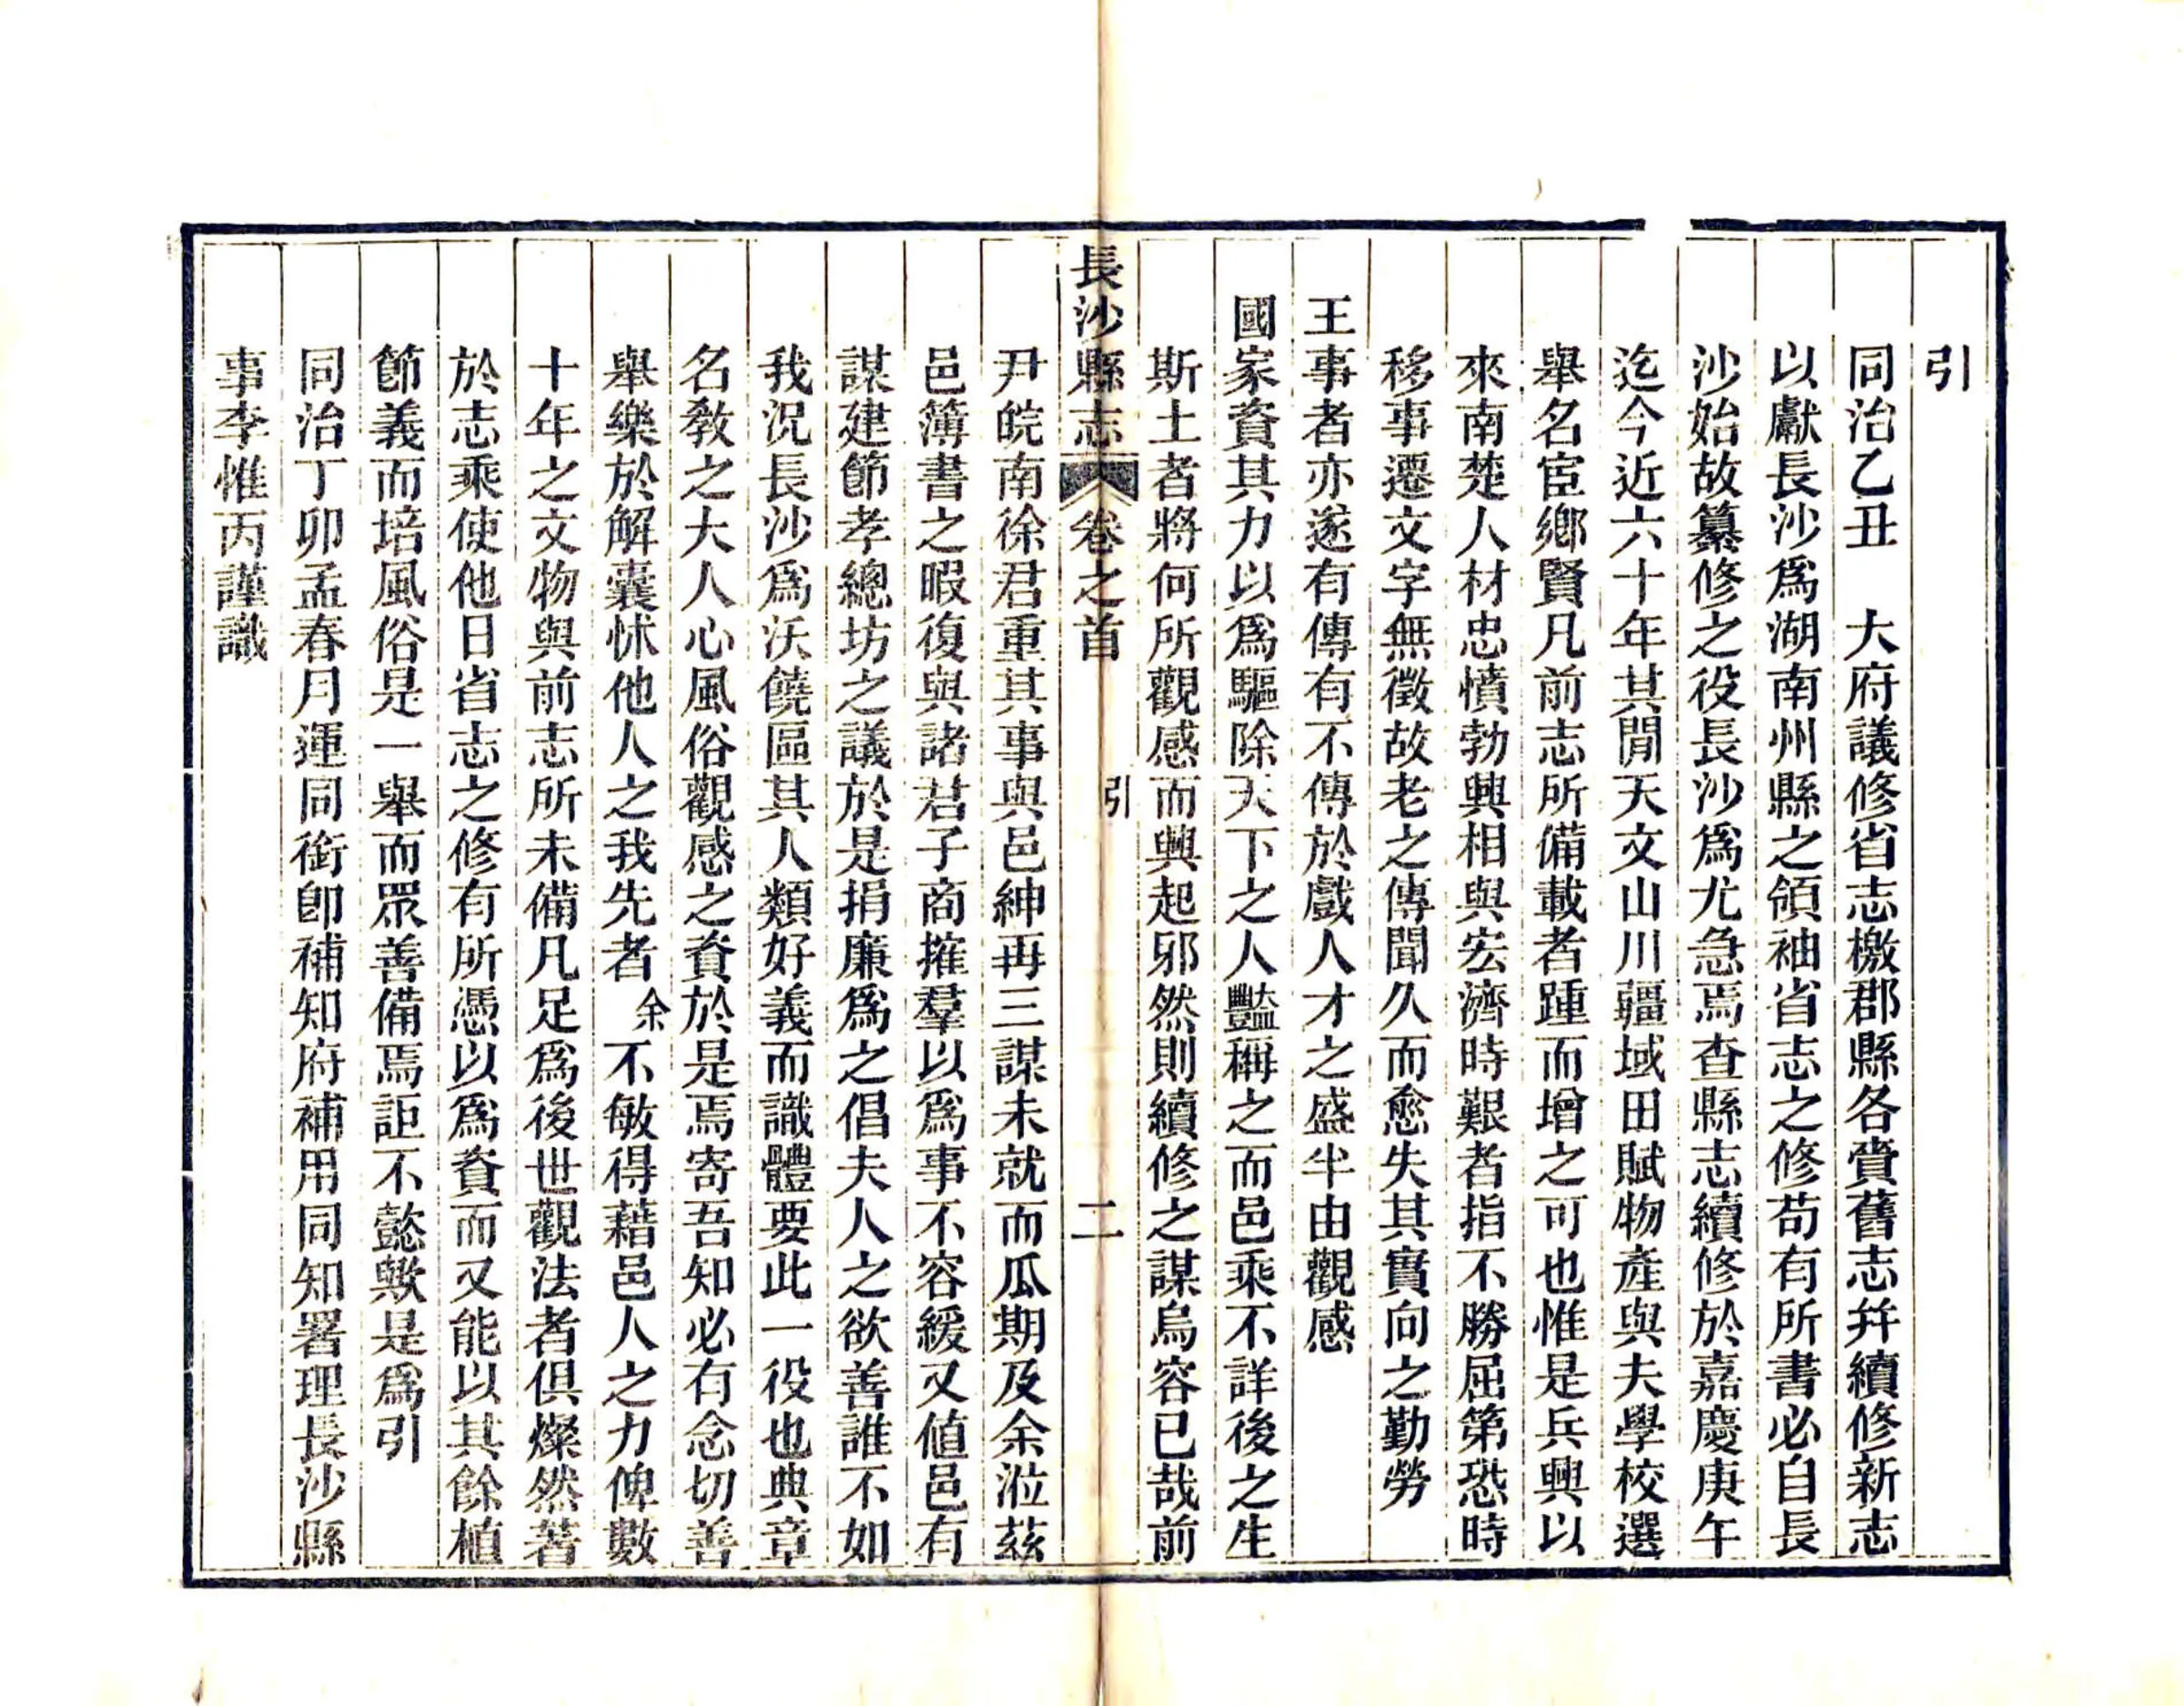 引
同治乙丑　大府議修省志檄郡縣各賫舊志幷續修新志
以獻長沙爲湖南州縣之領袖省志之修苟有所書必自長
沙始故纂修之役長沙爲尤急焉查縣志續修於嘉慶庚午
迄今近六十年其閒天文山川疆域田賦物產與夫學校選
舉名宦鄉賢凡前志所備載者踵而增之可也惟是兵興以
來南楚人材忠憤勃興相與宏濟時艱者指不勝屈第恐時
移事遷文字無徵故老之傳聞久而愈失其實向之勤勞
王事者亦遂有傳有不傳於戲人才之盛半由觀感
國家資其力以爲驅除天下之人豔稱之而邑乘不詳後之生
斯土者將何所觀感而興起邪然則續修之謀烏容已哉前
長沙縣志　卷之首　引　二
尹皖南徐君重其事與邑紳再三謀未就而瓜期及余涖茲
邑簿書之暇復與諸君子商搉羣以爲事不容緩又値邑有
謀建節孝總坊之議於是捐廉爲之倡夫人之欲善誰不如
我況長沙爲沃饒區其人類好義而識體要此一役也典章
名敎之大人心風俗觀感之資於是焉寄吾知必有念切善
舉樂於解囊怵他人之我先者余不敏得藉邑人之力俾數
十年之文物與前志所未備凡足爲後世觀法者俱燦然著
於志乘使他日省志之修有所憑以爲資而又能以其餘植
節義而培風俗是一舉而眾善備焉詎不懿歟是爲引
同治丁卯孟春月運同銜卽補知府補用同知署理長沙縣
事李惟丙謹識